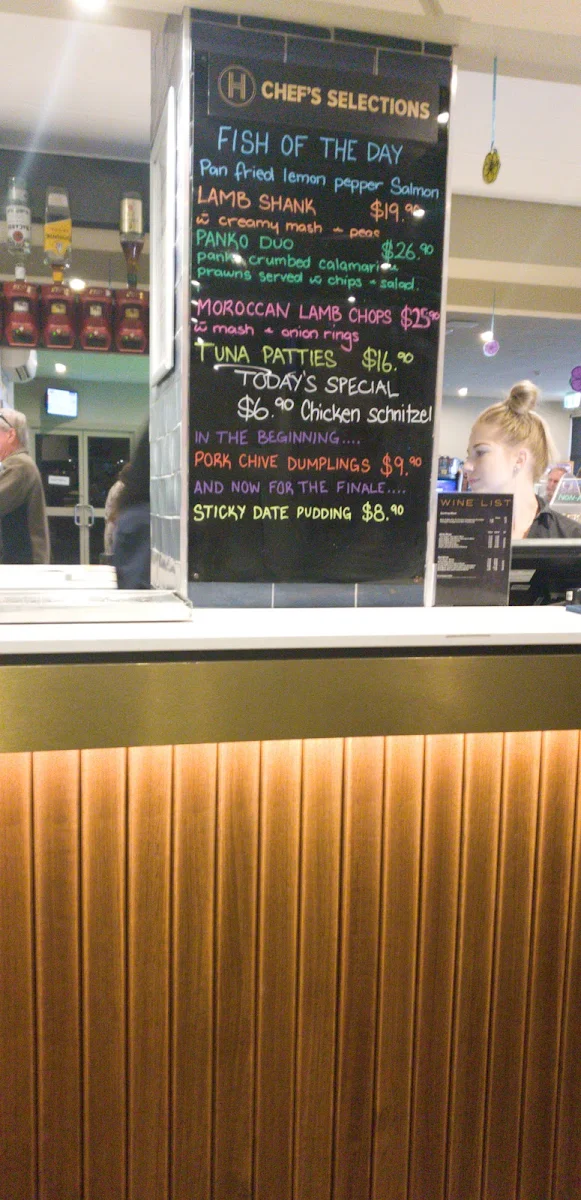 H CHEF'S SELECTIONS
FISH OF THE DAY
Pan fried lemon pepper Salmon
LAMB SHANK $19.90
w creamy mash + peas
PANKO DUO $26.90
panko crumbed calamari +
prawns served w chips + salad.
MOROCCAN LAMB CHOPS $25.90
w mash + onion rings
TUNA PATTIES $16.90
TODAY'S SPECIAL
$6.90 Chicken schnitzel
IN THE BEGINNING....
PORK CHIVE DUMPLINGS $9.90
AND NOW FOR THE FINALE....
STICKY DATE PUDDING $8.90
WINE LIST